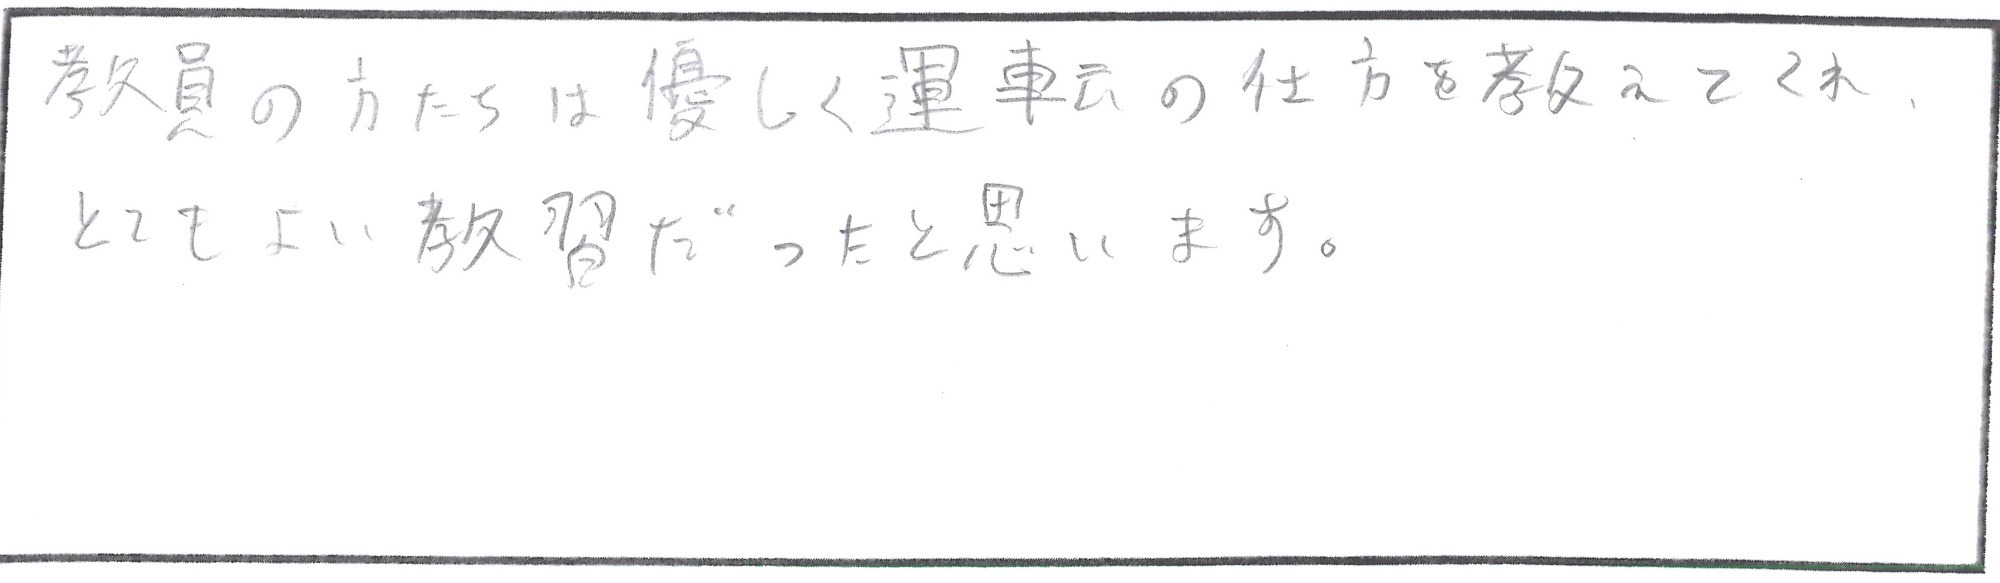 教員の方たちは優しく運転の仕方を教えてくれ、
とてもよい教習だったと思います。